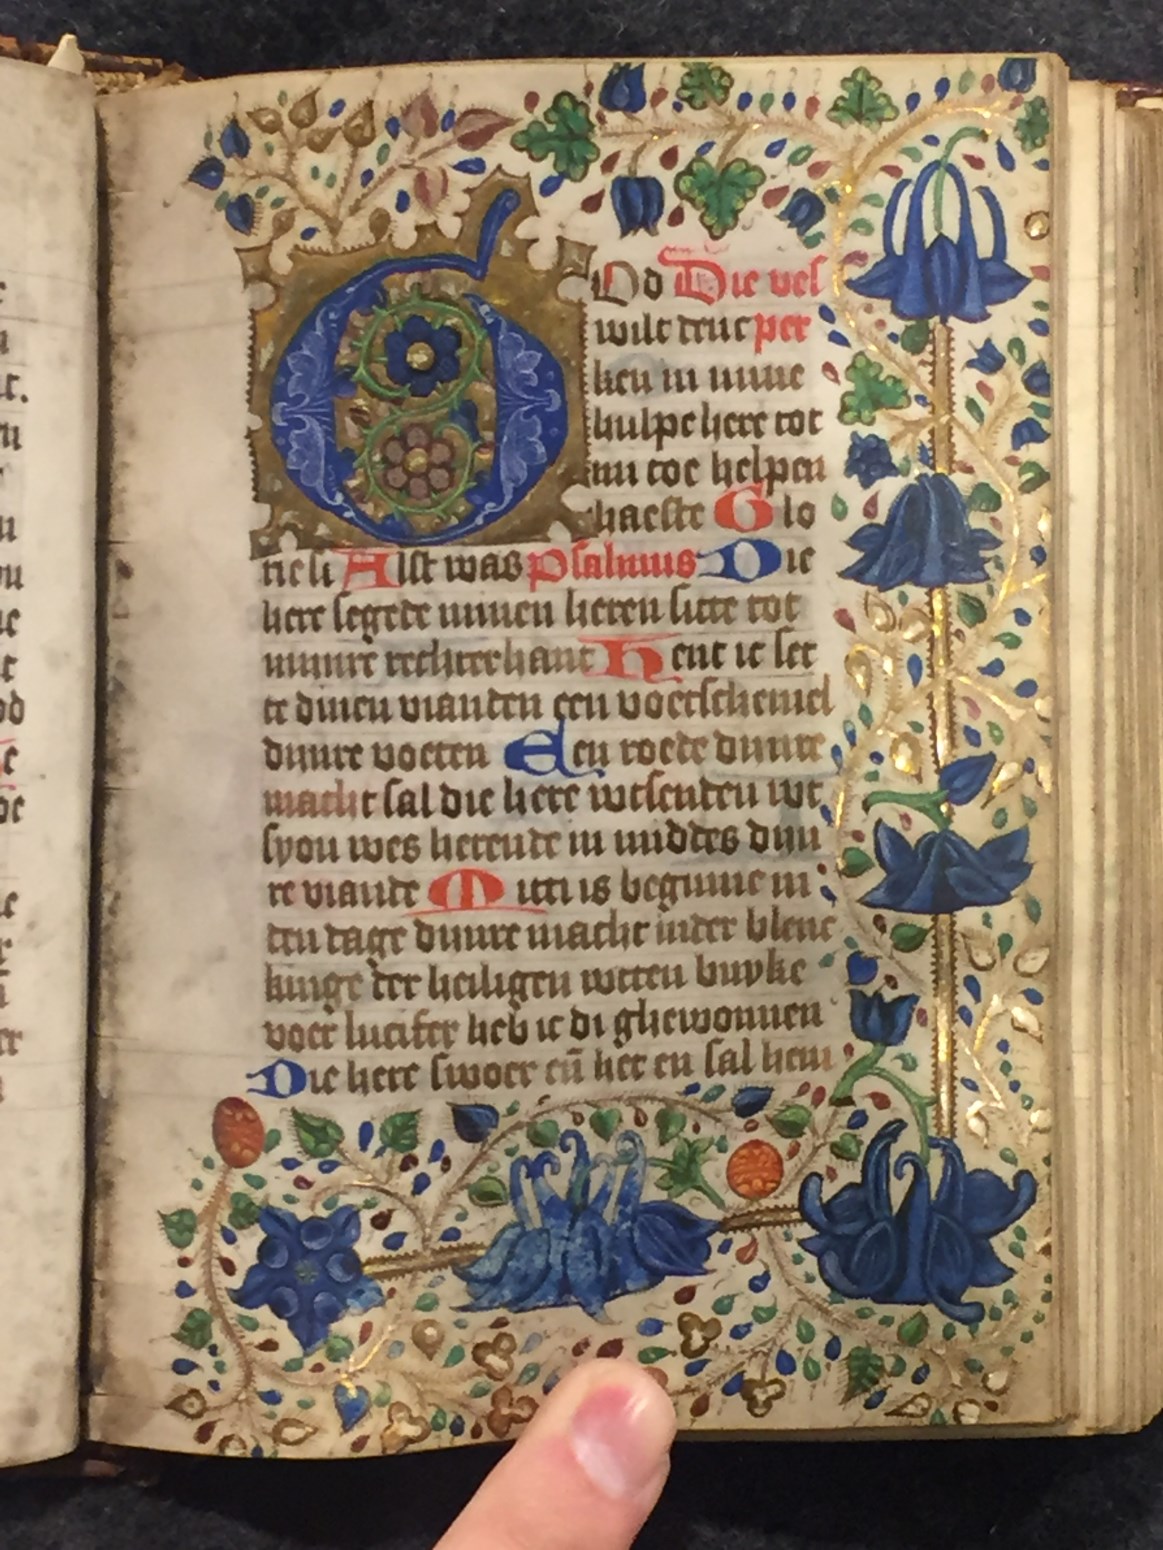 God Die vesper
wilt denc
ken in mine
hulpe here tot
mi toe helpen
haeste Glo
rie si Alst was psalmus Die
here segede minen heren sitte tot
minre rechterhant Hent ic set
te dinen vianden een voetschemel
dinre voeten Een roede dinre
macht sal die here wtsenden wt
syon wes herende in middes din
re viande Mitti is beginne in
den dage dinre macht inder blenc
kinge der heiligen wtten buyke
voer lucifer heb ic di ghewonnen
Die here swoer eñ het en sal hem